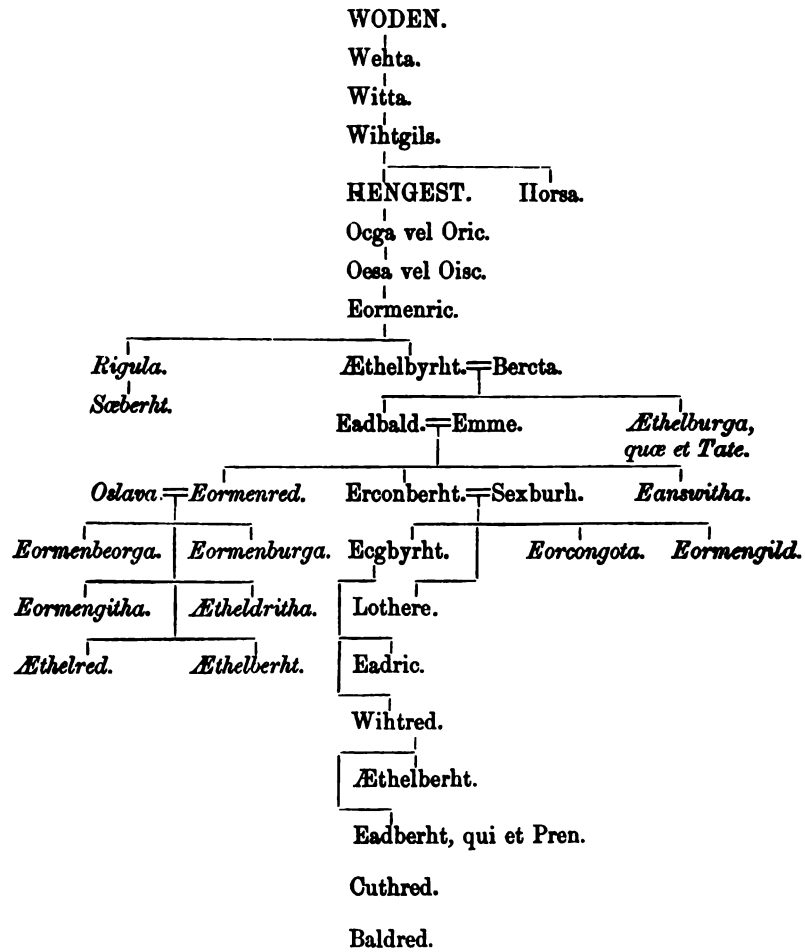 WODEN.
Wehta.
Witta.
Wihtgils.
HENGEST. Horsa.
Ocga vel Oric.
Oesa vel Oisc.
Eormenric.
Rigula. Æthelbyrht.=Bercta.
Sæberht.
Eadbald.=Emme. Æthelburga,
quæ et Tate.
Oslava.=Eormenred. Erconberht.=Sexburh. Eanswitha.
Eormenbeorga. Eormenburga. Ecgbyrht. Eorcongota. Eormengild.
Eormengitha. Ætheldritha. Lothere.
Æthelred. Æthelberht. Eadric.
Wihtred.
Æthelberht.
Eadberht, qui et Pren.
Cuthred.
Baldred.